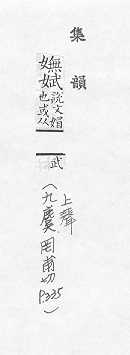 集韻
嫵娬說文媚也或从
武
上聲
(九麌罔甫切P.335)